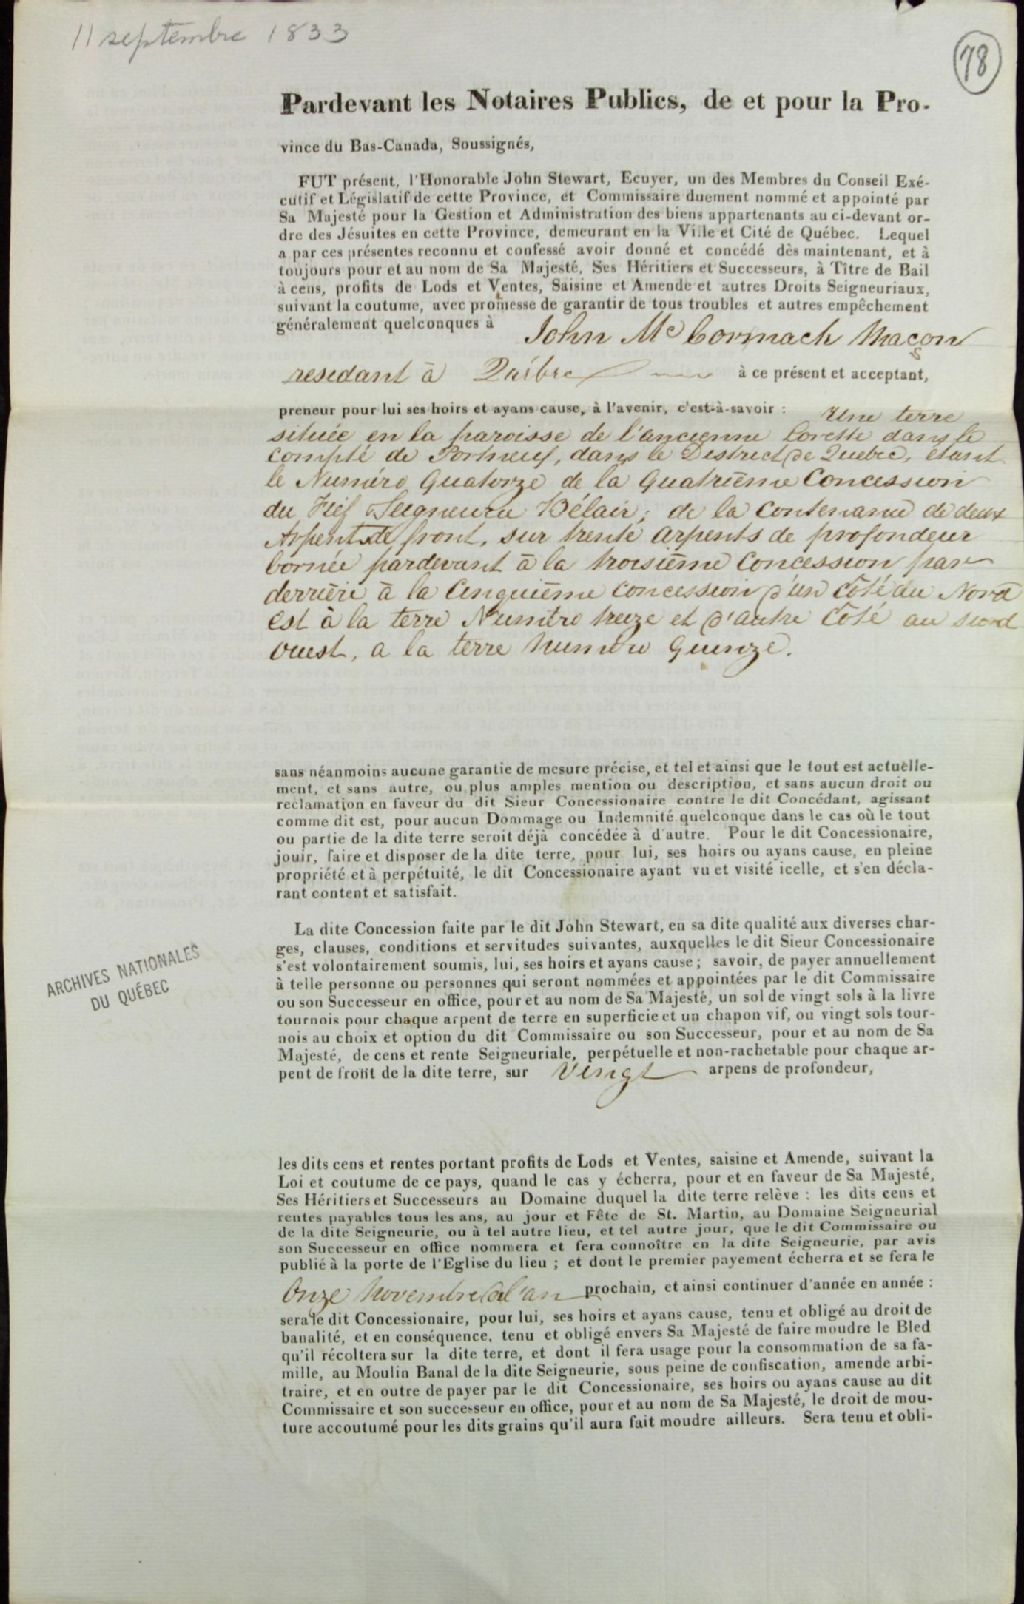 11 septembre 1833
78
Pardevant les Notaires Publics, de et pour la Pro-
vince du Bas-Canada, Soussignés,
FUT présent, l'Honorable John Stewart, Ecuyer, un des Membres du Conseil Exé-
cutif et Législatif de cette Province, et Commissaire duement nommé et appointé par
Sa Majesté pour la Gestion et Administration des biens appartenants au ci-devant or-
dre des Jésuites en cette Province, demeurant en la Ville et Cité de Québec. Lequel
a par ces présentes reconnu et confessé avoir donné et concédé dès maintenant, et à
toujours pour et au nom de Sa Majesté, Ses Héritiers et Successeurs, à Titre de Bail
à cens, profits de Lods et Ventes, Saisine et Amende et autres Droits Seigneuriaux,
suivant la coutume, avec promesse de garantir de tous troubles et autres empêchement
généralement quelconques à John McCormack Maçon
residant à Québec à ce présent et acceptant,
preneur pour lui ses hoirs et ayans cause, à l'avenir, c'est-à-savoir : Une terre
située en la paroisse de l'ancienne Lorette dans le
Compté de Portneuf, dans le District de Quebec, étant
le Numéro Quatorze de la Quatrième Concession
du Fief Seigneurie Bélair; de la Contenance de deux
Arpents de front, sur trente arpents de profondeur
bornée pardevant à la troisième Concession par
derrière à la Cinquième Concession d'un côté du Nord
est à la terre Numéro treize et d'autre Côté au sud
Ouest, a la terre Numéro Quinze.
sans néanmoins aucune garantie de mesure précise, et tel et ainsi que le tout est actuelle-
ment, et sans autre, ou plus amples mention ou description, et sans aucun droit ou
reclamation en faveur du dit Sieur Concessionaire contre le dit Concédant, agissant
comme dit est, pour aucun Dommage ou Indemnité quelconque dans le cas où le tout
ou partie de la dite terre seroit déjà concédée à d'autre. Pour le dit Concessionaire,
jouir, faire et disposer de la dite terre, pour lui, ses hoirs ou ayans cause, en pleine
propriété et à perpétuité, le dit Concessionaire ayant vu et visité icelle, et s'en décla-
rant content et satisfait.
La dite Concession faite par le dit John Stewart, en sa dite qualité aux diverses char-
ges, clauses, conditions et servitudes suivantes, auxquelles le dit Sieur Concessionaire
s'est volontairement soumis, lui, ses hoirs et ayans cause ; savoir, de payer annuellement
à telle personne ou personnes qui seront nommées et appointées par le dit Commissaire
ou son Successeur en office, pour et au nom de Sa Majesté, un sol de vingt sols à la livre
tournois pour chaque arpent de terre en superficie et un chapon vif, ou vingt sols tour-
nois au choix et option du dit Commissaire ou son Successeur, pour et au nom de Sa
Majesté, de cens et rente Seigneuriale, perpétuelle et non-rachetable pour chaque ar-
pent de front de la dite terre, sur Vingt arpens de profondeur,
ARCHIVES NATIONALES
DU QUÉBEC
les dits cens et rentes portant profits de Lods et Ventes, saisine et Amende, suivant la
Loi et coutume de ce pays, quand le cas y écherra, pour et en faveur de Sa Majesté,
Ses Héritiers et Successeurs au Domaine duquel la dite terre relève : les dits cens et
rentes payables tous les ans, au jour et Fête de St. Martin, au Domaine Seigneurial
de la dite Seigneurie, ou à tel autre lieu, et tel autre jour, que le dit Commissaire ou
son Successeur en office nommera et fera connoître en la dite Seigneurie, par avis
publié à la porte de l'Eglise du lieu ; et dont le premier payement écherra et se fera le
Onze Novembre de l'an prochain, et ainsi continuer d'année en année :
sera le dit Concessionaire, pour lui, ses hoirs et ayans cause, tenu et obligé au droit de
banalité, et en conséquence, tenu et obligé envers Sa Majesté de faire moudre le Bled
qu'il récoltera sur la dite terre, et dont il fera usage pour la consommation de sa fa-
mille, au Moulin Banal de la dite Seigneurie, sous peine de confiscation, amende arbi-
traire, et en outre de payer par le dit Concessionaire, ses hoirs ou ayans cause au dit
Commissaire et son successeur en office, pour et au nom de Sa Majesté, le droit de mou-
ture accoutumé pour les dits grains qu'il aura fait moudre ailleurs. Sera tenu et obli-